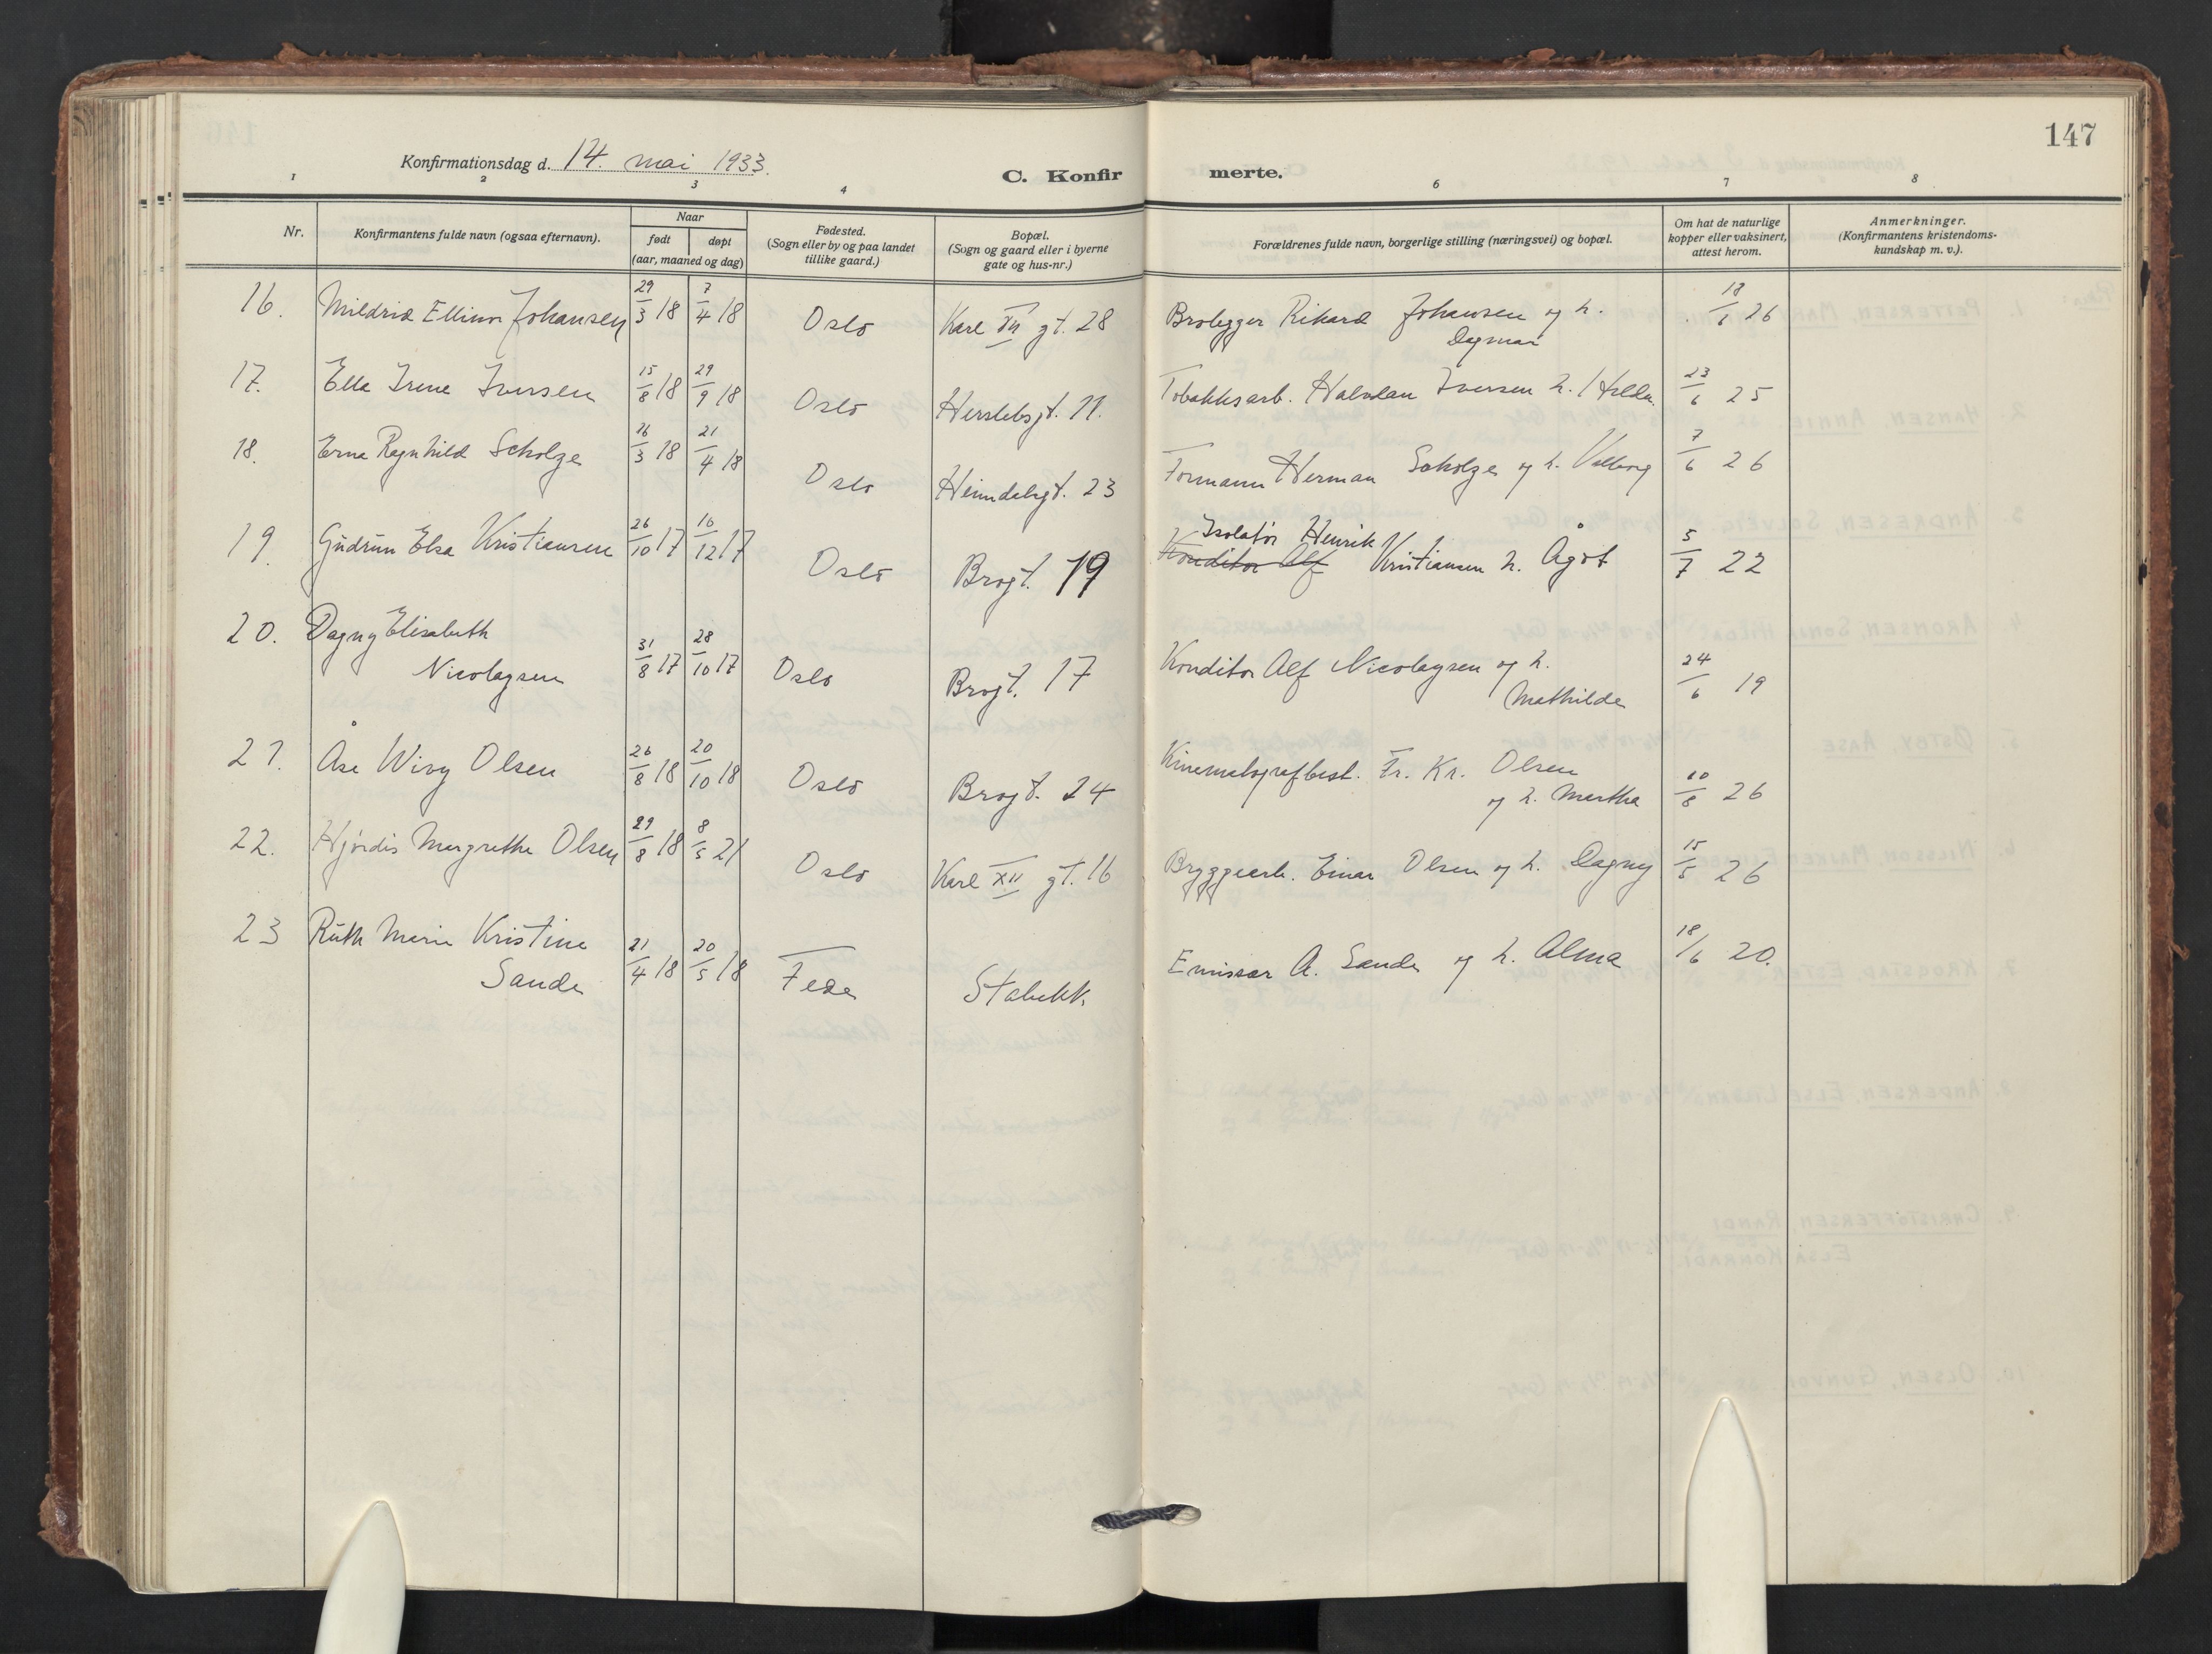 147
Konfirmationsdag d. 14. mai 1933.
C. Konfirmerte.
1 2 3 4 6 7 8
Nr. Konfirmantens fulde navn (ogsaa efternavn). Naar født døpt (aar, maaned og dag) Fødested. (Sogn eller by og paa landet tillike gaard.) Bopæl. (Sogn og gaard eller i byerne gate og hus-nr.) Forældrenes fulde navn, borgerlige stilling (næringsvei) og bopæl. Om hat de naturlige kopper eller vaksinert, attest herom. Anmerkninger. (Konfirmantens kristendoms-kundskap m. v.).
16. Mildrid Ellinor Johansen 29/3 18 7/4 18 Oslo Karl XII gt. 28 Brolegger Rikard Johansen og h. Dagmar 26
17. Ella Irene Iversen 15/8 18 29/9 18 Oslo Herslebsgt. 11. Tobakksarb. Halvdan Iversen h. Hilda. 23/6 25
18. Erna Ragnhild Scholze 16/3 18 21/4 18 Oslo Heimdalsgt. 23 Formann Herman Scholze og h. Valborg 7/6 26
19. Gudrun Elsa Kristiansen 26/10 17 16/12 17 Oslo Brogt. 19 Isolatør Henrik Konditor Alf Kristiansen h. Ågot 5/7 22
20. Dagny Elisabeth
Nicolaysen 31/8 17 28/10 17 Oslo Brogt. 17 Konditor Alf Nicolaysen og h. Mathilde 24/6 19
21. Åse Wivy Olsen 26/8 18 20/10 18 Oslo Brogt. 24 Kinematografbest. Fr. Kr. Olsen og h. Martha 10/8 26
22. Hjørdis Margrethe Olsen 29/8 18 8/5 21 Oslo Karl XII gt. 16 Bryggearb. Einar Olsen og h. Dagny 15/5 26
23 Ruth Marie Kristine
Sande 21/4 18 20/5 18 Feda Stabekk. Emissær A. Sande og h. Alma 18/6 20.